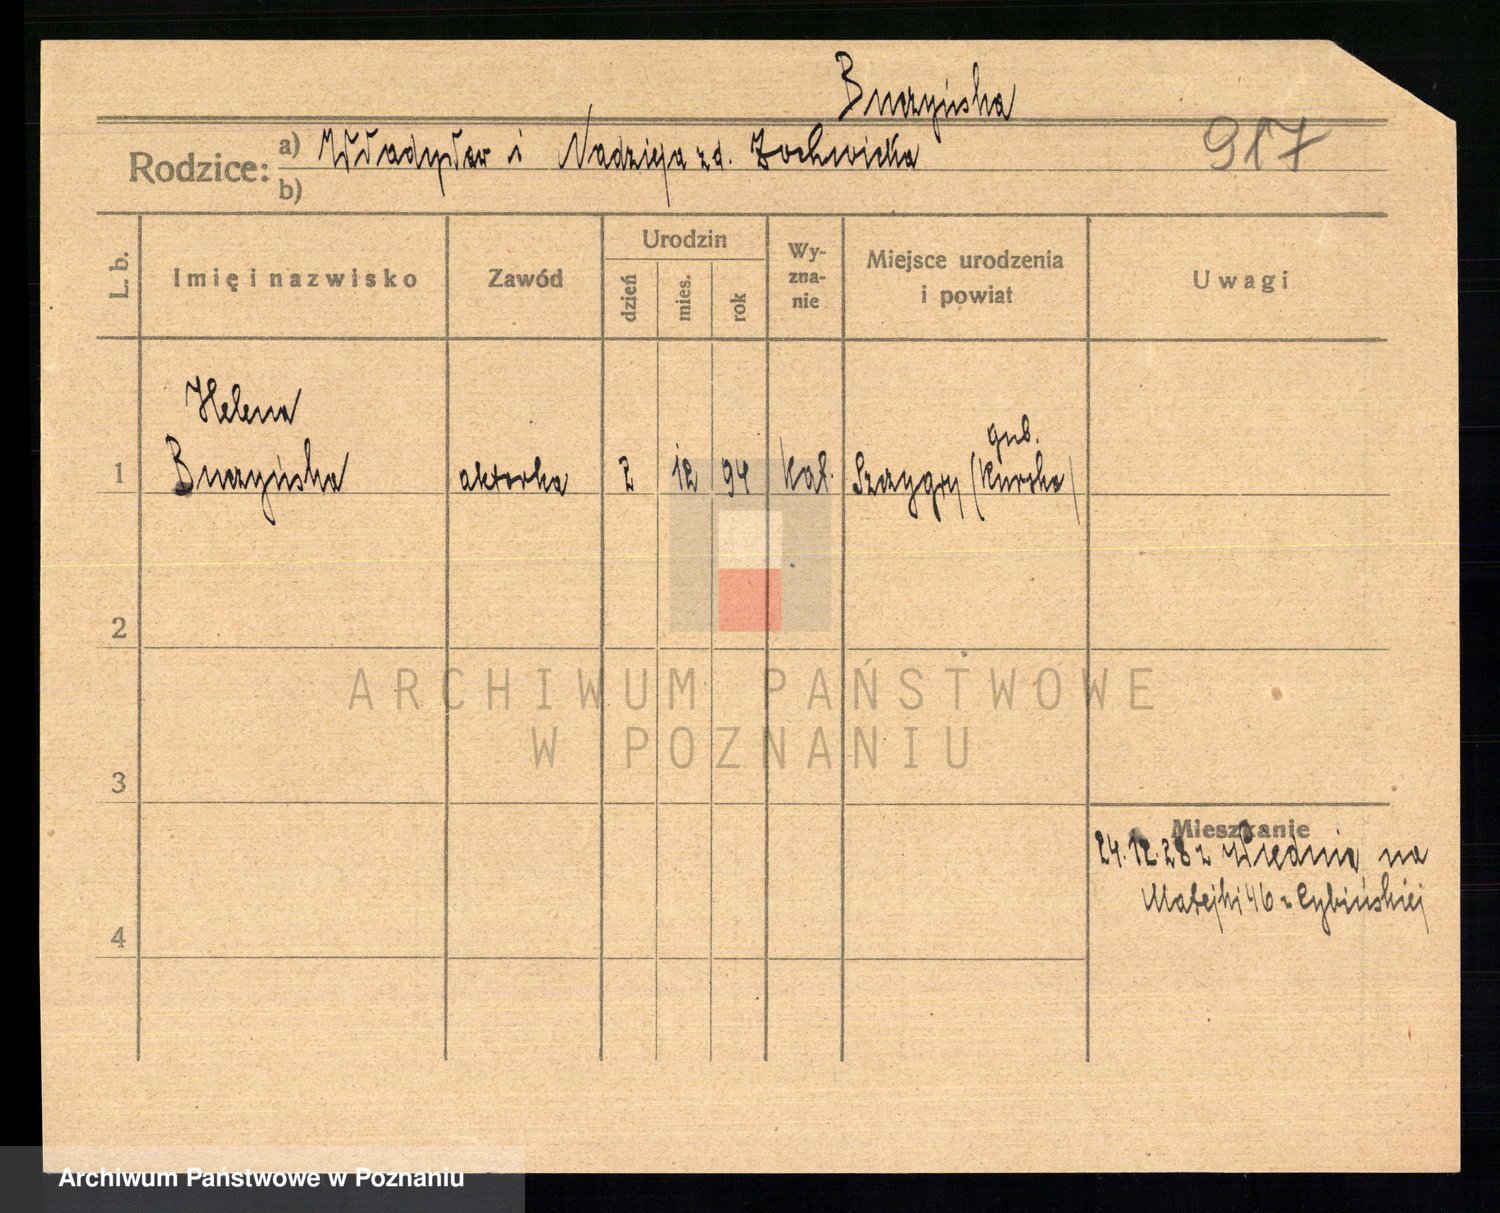 Buczyńska
917
Rodzice:
a) Władysław i Nadzieja z d. Żochowicka
b)
L. b.
Imię i nazwisko
Zawód
Urodzin
dzień
mies.
rok
Wy-
zna-
nie
Miejsce urodzenia
i powiat
Uwagi
Helena
1 Buczyńska aktorka 2 12 94 kat. Szczygry (Kurska)
gub.
2
3
4
Mieszkanie
24.12.28 z Wiednia na
Matejki 46 u Cybińskiej
ARCHIWUM PAŃSTWOWE
W POZNANIU
Archiwum Państwowe w Poznaniu